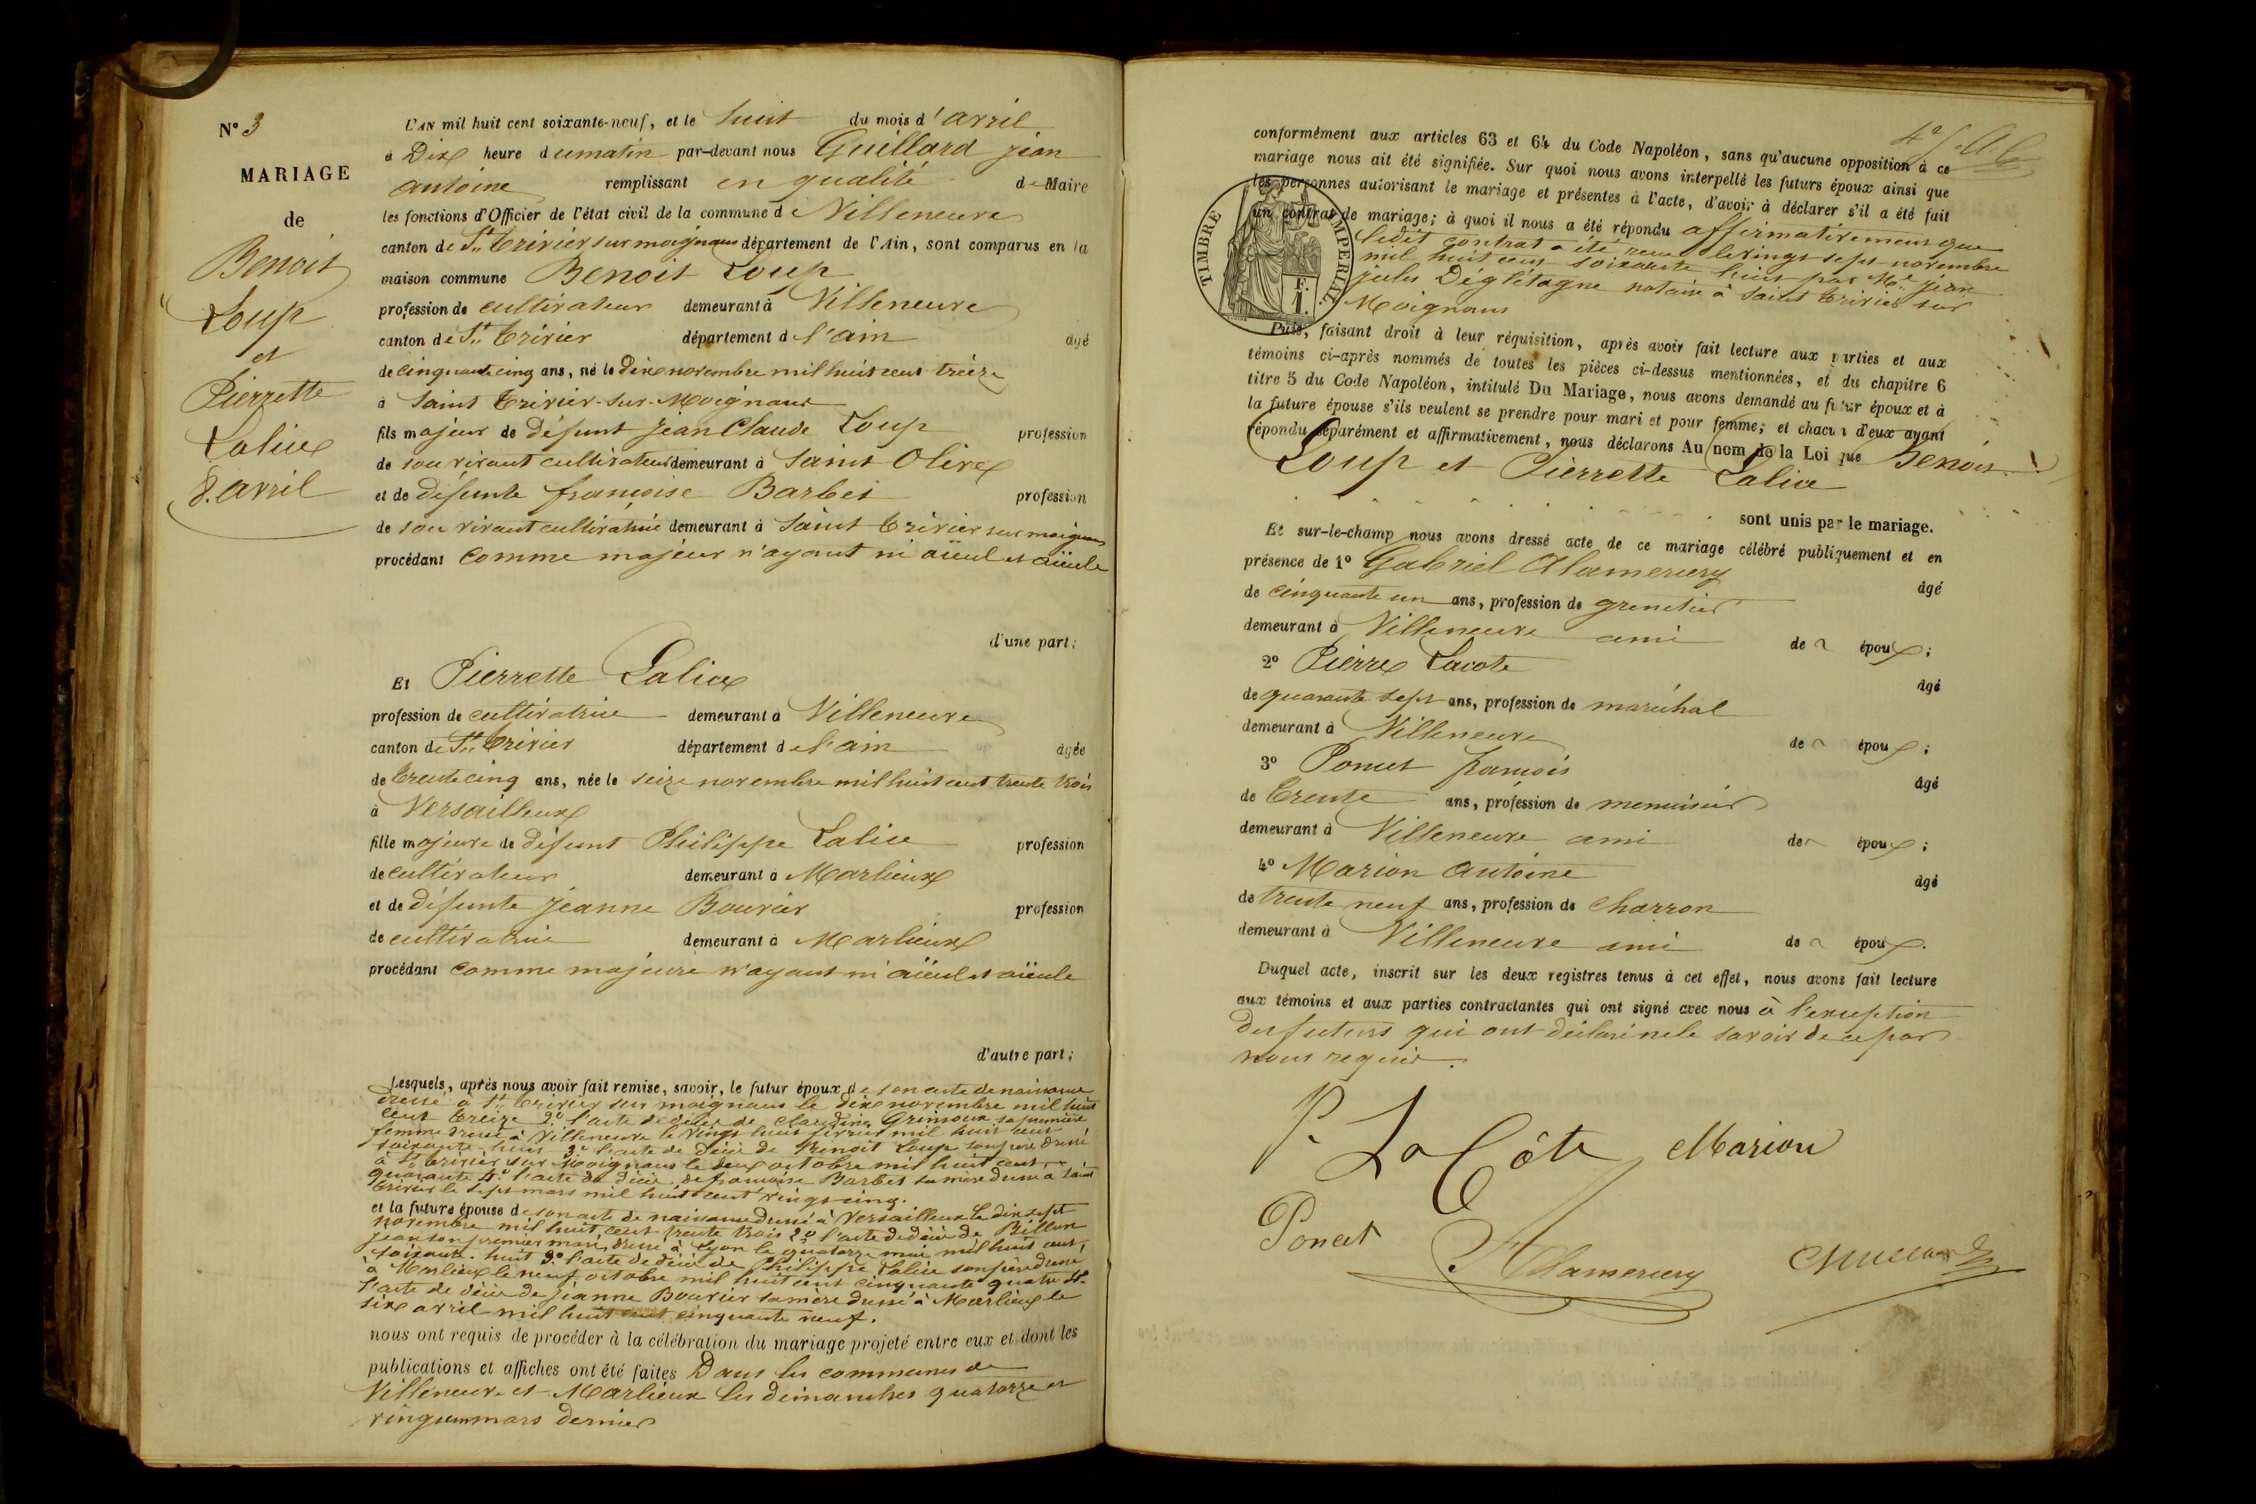 N° 3
MARIAGE
de
Benoit
Loup
et
Pierrette
Lalice
8. avril
L'AN mil huit cent soixante-neuf, et le huit du mois d'avril
à Dix heure du matin par-devant nous Guillard jean
antoine remplissant en qualité de Maire
les fonctions d'Officier de l'état civil de la commune de Villeneuve
canton de St. trivier sur moignans département de l'Ain, sont comparus en la
maison commune Benoit Loup
profession de cultivateur demeurant à Villeneuve
canton de St. trivier département de l'ain âgé
de cinquante cinq ans, né le dix novembre mil huit cent treize
à Saint trivier-sur-Moignans
fils majeur de défunt jean Claude Loup profession
de son vivant cultivateur demeurant à Saint Olive
et de défunte françoise Barbet profession
de son vivant cultivatrice demeurant à Saint trivier sur moignans
procédant comme majeur n'ayant ni aïeul et aïeule
d'une part;
Et Pierrette Lalice
profession de cultivatrice demeurant à Villeneuve
canton de St. trivier département de l'ain âgée
de trente cinq ans, née le seize novembre mil huit cent trente trois
à Versailleux
fille majeure de défunt Philippe Lalice profession
de cultivateur demeurant à Marlieux
et de défunte jeanne Bouvier profession
de cultivatrice demeurant à Marlieux
procédant comme majeure n'ayant ni aïeul et aïeule
d'autre part;
Lesquels, après nous avoir fait remise, savoir, le futur époux de son acte de naissance
dressé à St. trivier sur moignans le dix novembre mil huit
cent treize 2° l'acte de décès de Claudine Grimoux sa première
femme dressé à Villeneuve le vingt huit février mil huit cent
soixante huit 3° l'acte de décès de Benoit Loup son père dressé
à St. trivier sur Moignans le deux octobre mil huit cent
quarante 4° l'acte de décès de françoise Barbet sa mère dressé à Saint
trivier le sept mars mil huit cent vingt-cinq.
et la future épouse de son acte de naissance dressé à Versailleux le dix sept
novembre mil huit cent trente trois 2° l'acte de décès de Billon
jean son premier mari, dressé à Lyon le quatorze mai mil huit cent
soixante-huit 3° l'acte de décès de Philippe Lalice son père dressé
à Marlieux le neuf octobre mil huit cent cinquante quatre 4°
l'acte de décès de jeanne Bouvier sa mère dressé à Marlieux le
six avril mil huit cent cinquante neuf.
nous ont requis de procéder à la célébration du mariage projeté entre eux et dont les
publications et affiches ont été faites Dans les communes de
Villeneuve et Marlieux les dimanches quatorze et
vingt un mars dernier
conformément aux articles 63 et 64 du Code Napoléon, sans qu'aucune opposition à ce
mariage nous ait été signifiée. Sur quoi nous avons interpellé les futurs époux ainsi que
les personnes autorisant le mariage et présentes à l'acte, d'avoir à déclarer s'il a été fait
un contrat de mariage; à quoi il nous a été répondu affirmativement que
ledit contrat a été reçu le vingt sept novembre
mil huit cent soixante huit par Me. jean
jules Déglétagne notaire à Saint trivier sur
Moignans
TIMBRE IMPERIAL
F.
1.
Puis, faisant droit à leur réquisition, après avoir fait lecture aux parties et aux
témoins ci-après nommés de toutes les pièces ci-dessus mentionnées, et du chapitre 6
titre 5 du Code Napoléon, intitulé Du Mariage, nous avons demandé au futur époux et à
la future épouse s'ils veulent se prendre pour mari et pour femme; et chacun d'eux ayant
répondu séparément et affirmativement, nous déclarons Au nom de la Loi que Benoit
Loup et Pierrette Lalice
sont unis par le mariage.
Et sur-le-champ nous avons dressé acte de ce mariage célébré publiquement et en
présence de 1° Gabriel Alamercery âgé
de cinquante un ans, profession de grenetier
demeurant à Villeneuve ami de époux;
2° Pierre Lacote âgé
de quarante sept ans, profession de maréchal
demeurant à Villeneuve de époux;
3° Poncet françois âgé
de trente ans, profession de menuisier
demeurant à Villeneuve ami de époux;
4° Marion Antoine âgé
de trente neuf ans, profession de charron
demeurant à Villeneuve ami de époux.
Duquel acte, inscrit sur les deux registres tenus à cet effet, nous avons fait lecture
aux témoins et aux parties contractantes qui ont signé avec nous à l'exception
des futurs qui ont déclaré ne le savoir de ce par
nous requis.
P. La Côte Marion
Poncet
Alamercery